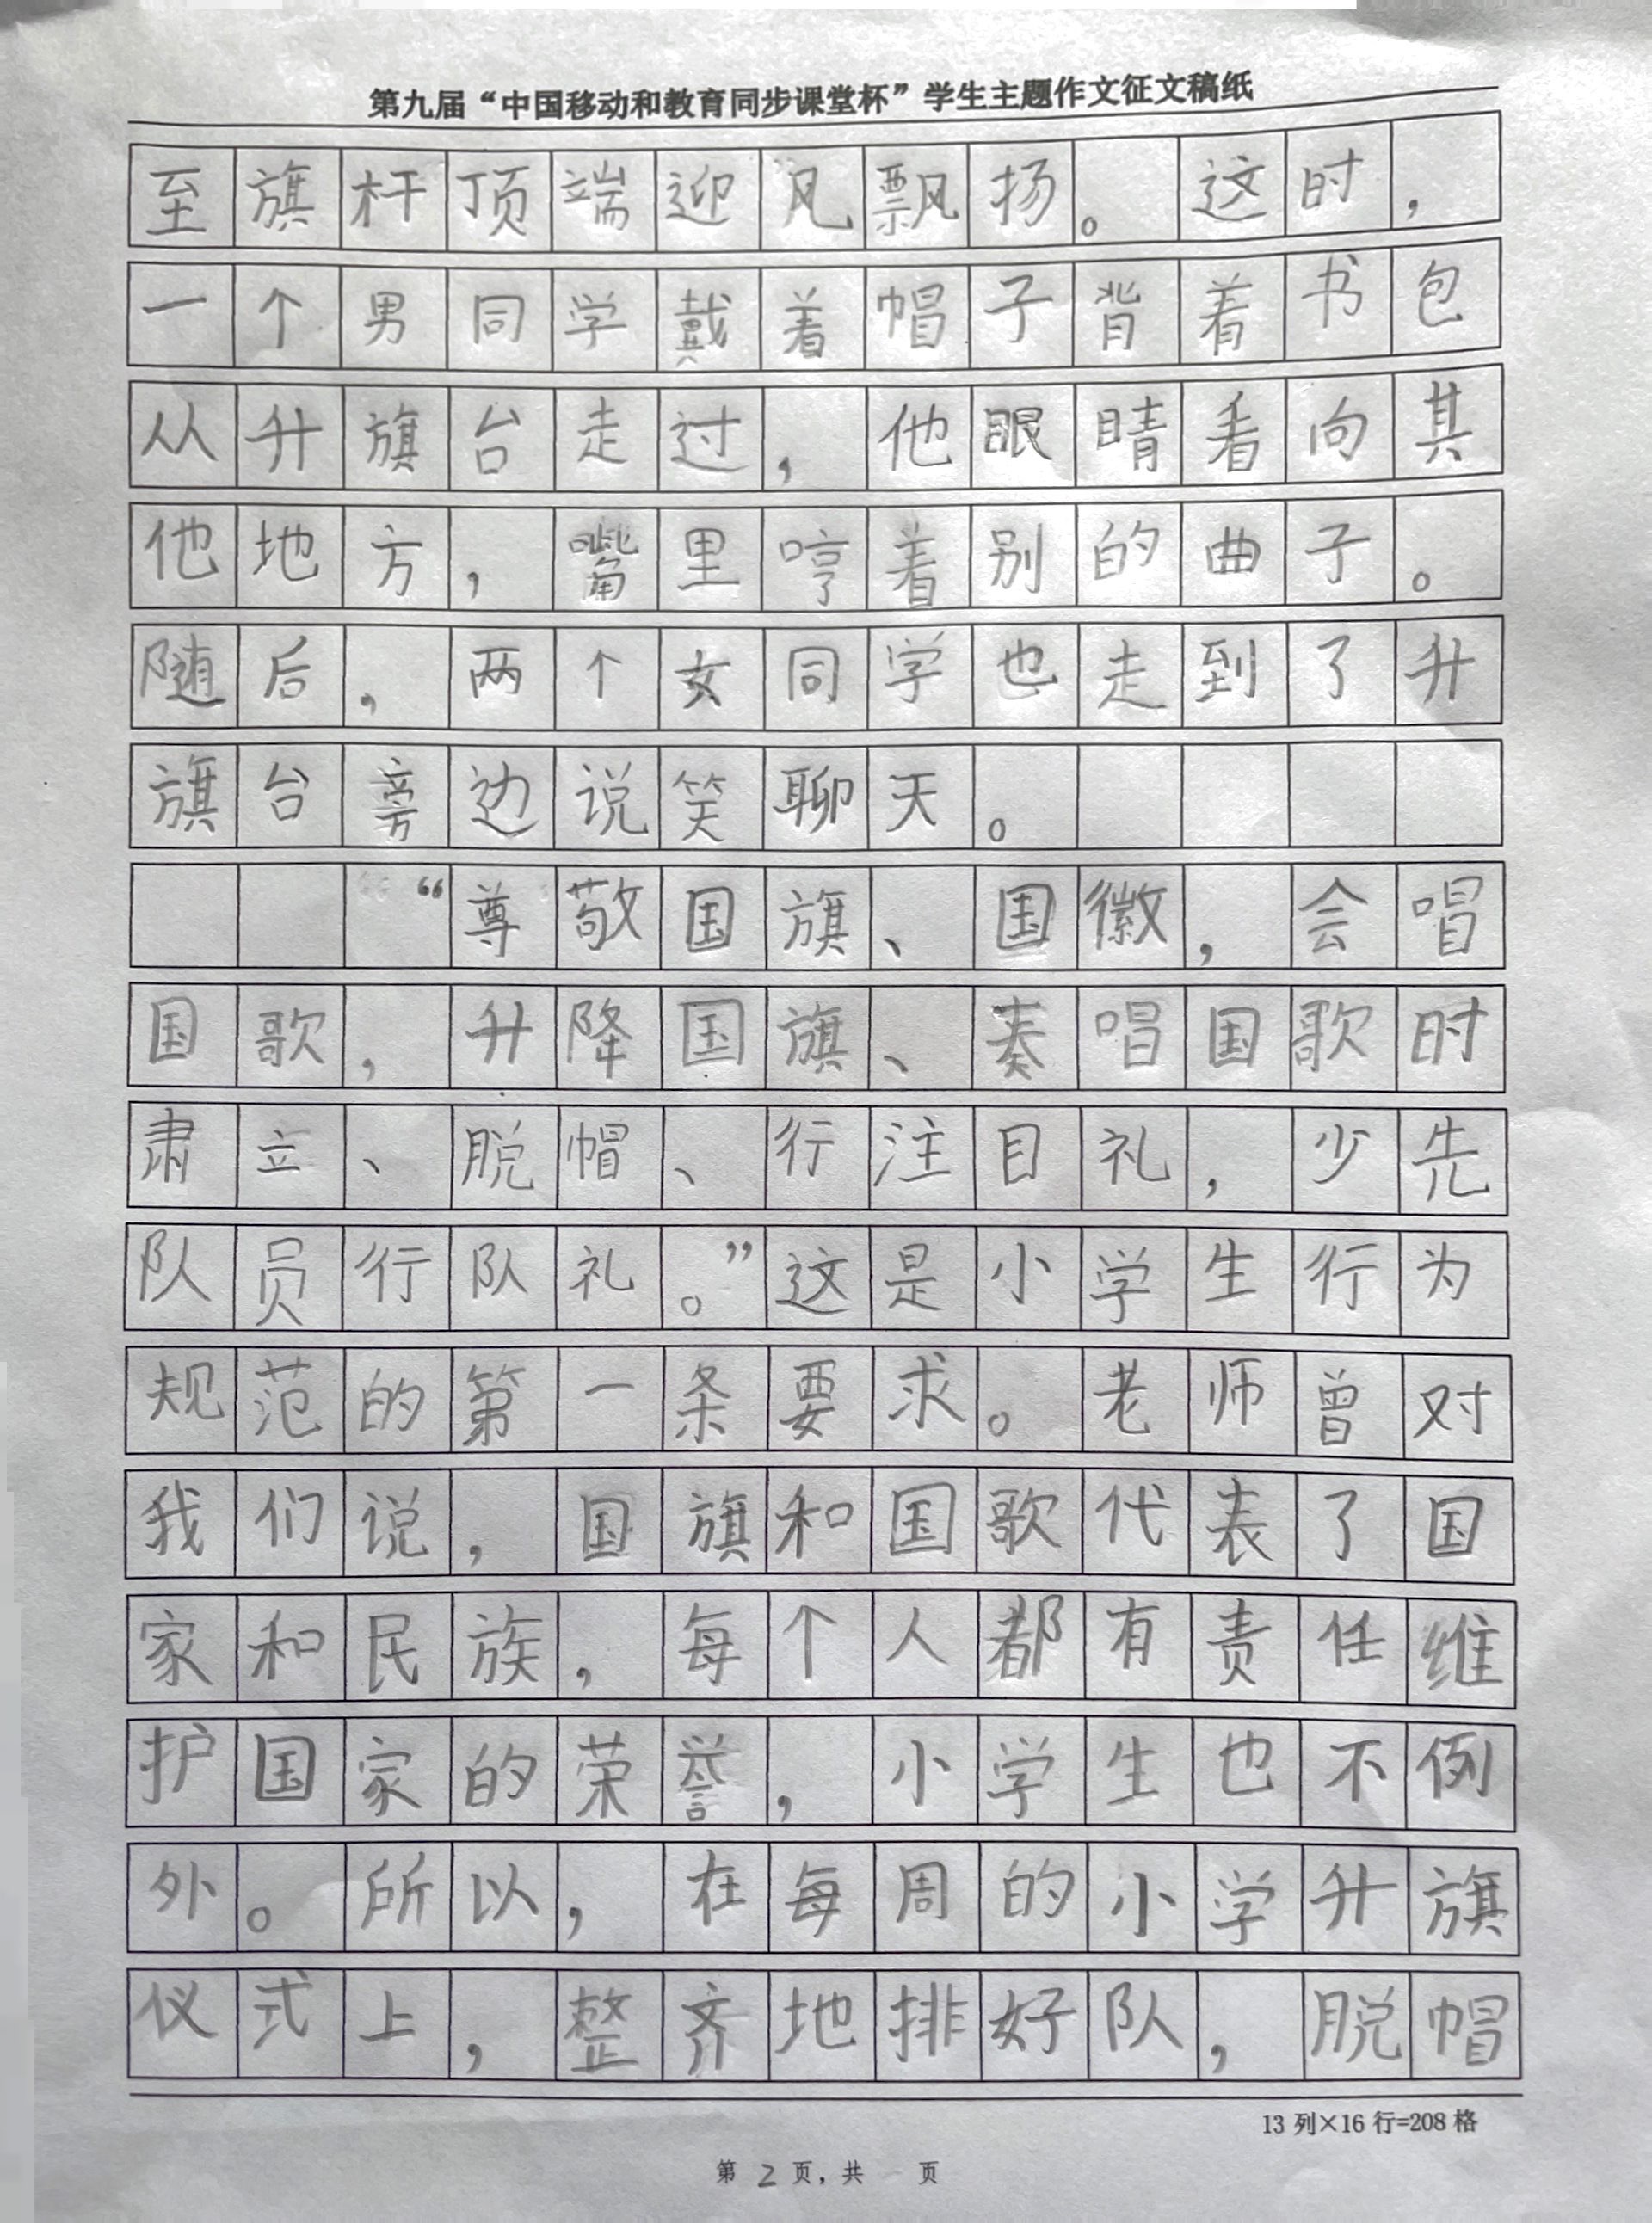 第九届“中国移动和教育同步课堂杯”学生主题作文征文稿纸
至旗杆顶端迎风飘扬。这时，
一个男同学戴着帽子背着书包
从升旗台走过，他眼睛看向其
他地方，嘴里哼着别的曲子。
随后，两个女同学也走到了升
旗台旁边说笑聊天。
“尊敬国旗、国徽，会唱
国歌，升降国旗、奏唱国歌时
肃立、脱帽、行注目礼，少先
队员行队礼。”这是小学生行为
规范的第一条要求。老师曾对
我们说，国旗和国歌代表了国
家和民族，每个人都有责任维
护国家的荣誉，小学生也不例
外。所以，在每周的小学升旗
仪式上，整齐地排好队，脱帽
13 列×16 行=208 格
第 2 页，共 页